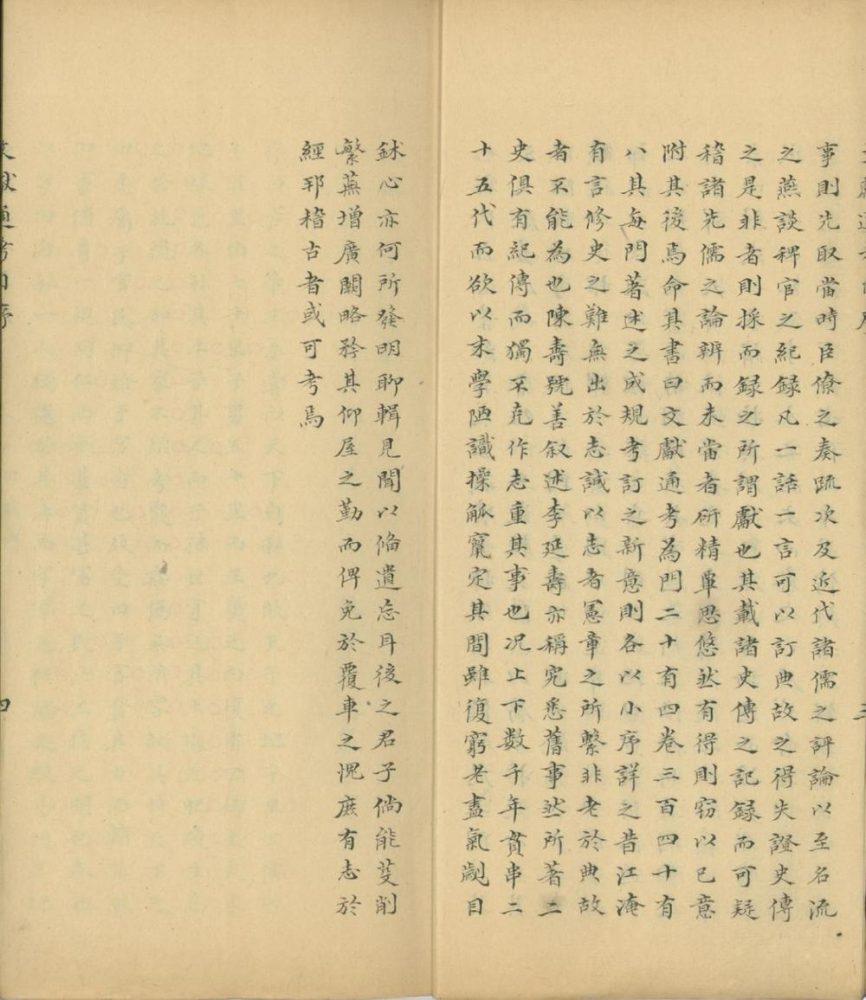 事則先取當時臣僚之奏疏次及近代諸儒之評論以至名流
之燕談稗官之紀録凡一話一言可以訂典故之得失證史傳
之是非者則採而録之所謂獻也其載諸史傳之記録而可疑
稽諸先儒之論辨而未當者研精覃思悠然有得則竊以己意
附其後焉命其書曰文獻通考為門二十有四卷三百四十有
八其每門著述之成規考訂之新意則各以小序詳之昔江淹
有言修史之難無出於志誠以志者憲章之所繫非老於典故
者不能為也陳壽號善叙述李延壽亦稱究悉舊事然所著二
史俱有紀傳而獨不克作志重其事也况上下数千年貫串二
十五代而欲以末學陋識操觚竄定其間雖復窮老盡氣劌目
鉥心亦何所發明聊輯見聞以俻遺忘耳後之君子倘能芟削
繁蕪增廣闕略矜其仰屋之勤而俾免於覆車之愧庶有志於
經邦稽古者或可考焉
四